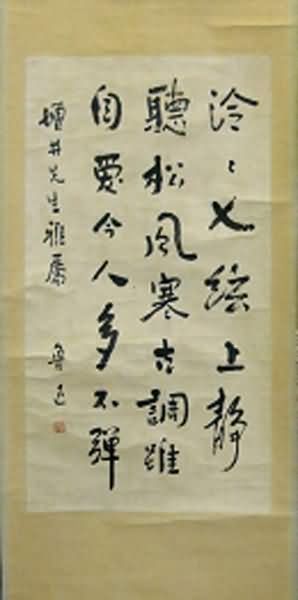 泠〻七絃上靜
聽松風寒古調雖
自愛今人多不彈
增井先生雅屬 魯迅